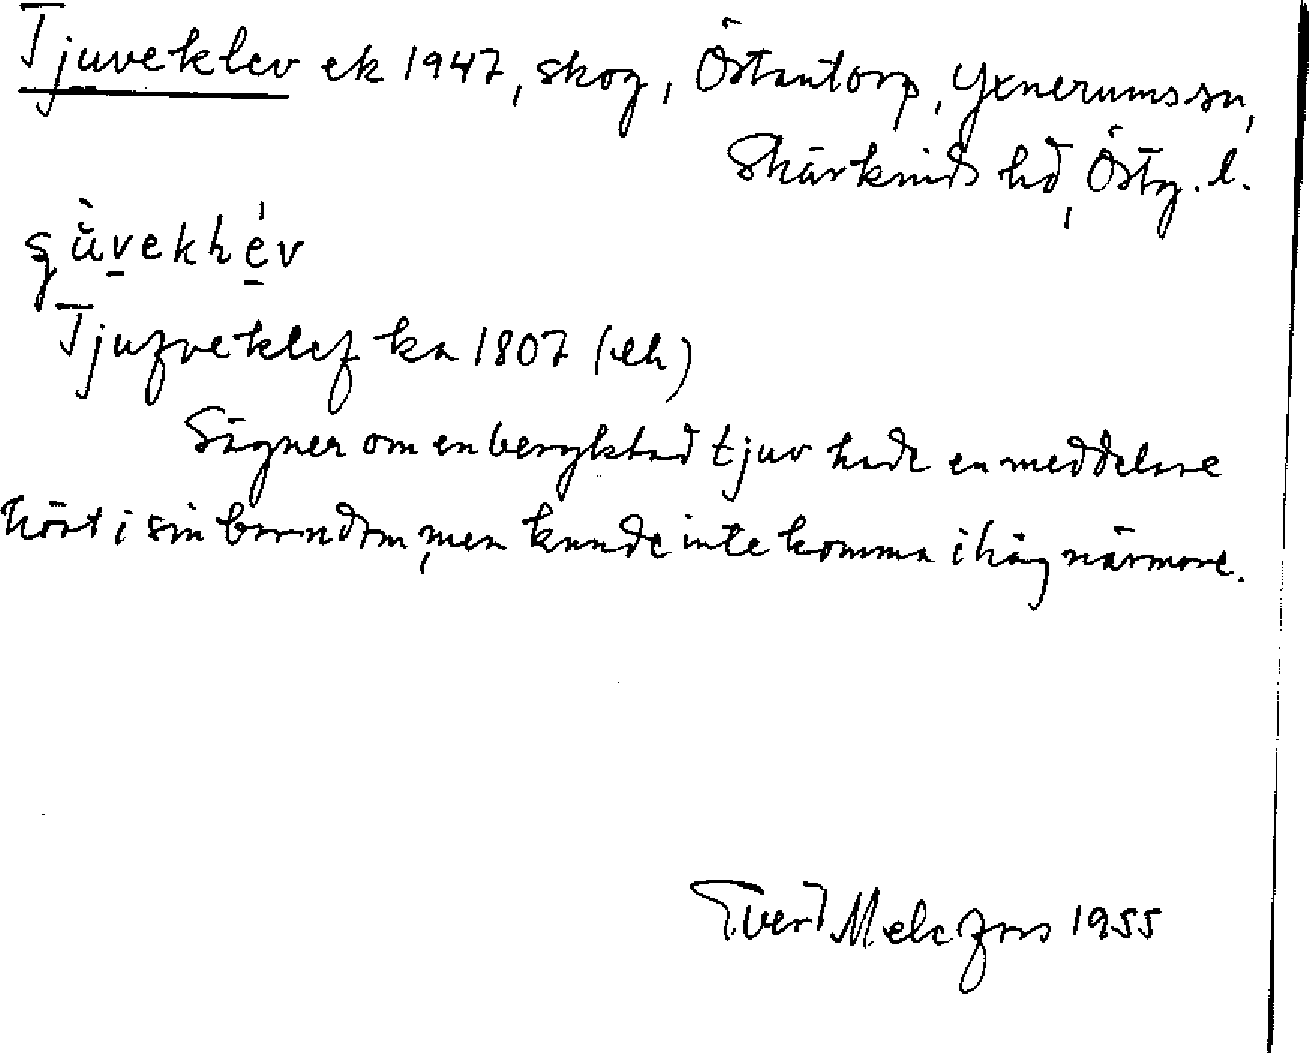 Tjuveklev ek 1947, skog, Östantorp, Yxnerums sn,
Skärkinds hd, Östg. l.
Tjufveklef ka 1807 (ek)
Sägner om en beryktad tjuv hade en meddelare
hört i sin barndom, men kunde inte komma ihåg närmare.
Evert Melefors 1955